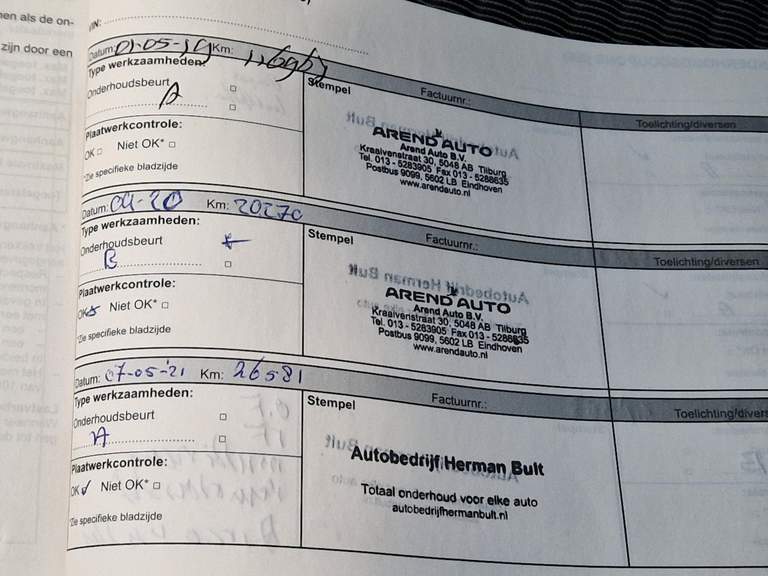 nen als de on-
zijn door een
VIN:
Datum: 01-05-19 Km:
Type werkzaamheden:
Onderhoudsbeurt
A
Plaatwerkcontrole:
OK Niet OK*
*Zie specifieke bladzijde
Stempel Factuurnr.: Toelichting/diversen
AREND AUTO
Arend Auto B.V.
Kraaivenstraat 30, 5048 AB Tilburg
Tel. 013 - 5283905 Fax 013 - 5288635
Postbus 9099, 5602 LB Eindhoven
www.arendauto.nl
Datum: 04-20 Km: 20270
Type werkzaamheden:
Onderhoudsbeurt
B
Plaatwerkcontrole:
OK Niet OK*
*Zie specifieke bladzijde
Stempel Factuurnr.: Toelichting/diversen
AREND AUTO
Arend Auto B.V.
Kraaivenstraat 30, 5048 AB Tilburg
Tel. 013 - 5283905 Fax 013 - 5288635
Postbus 9099, 5602 LB Eindhoven
www.arendauto.nl
Datum: 07-05-'21 Km: 26581
Type werkzaamheden:
Onderhoudsbeurt
A
Plaatwerkcontrole:
OK Niet OK*
*Zie specifieke bladzijde
Stempel Factuurnr.: Toelichting/divers
Autobedrijf Herman Bult
Totaal onderhoud voor elke auto
autobedrijfhermanbult.nl